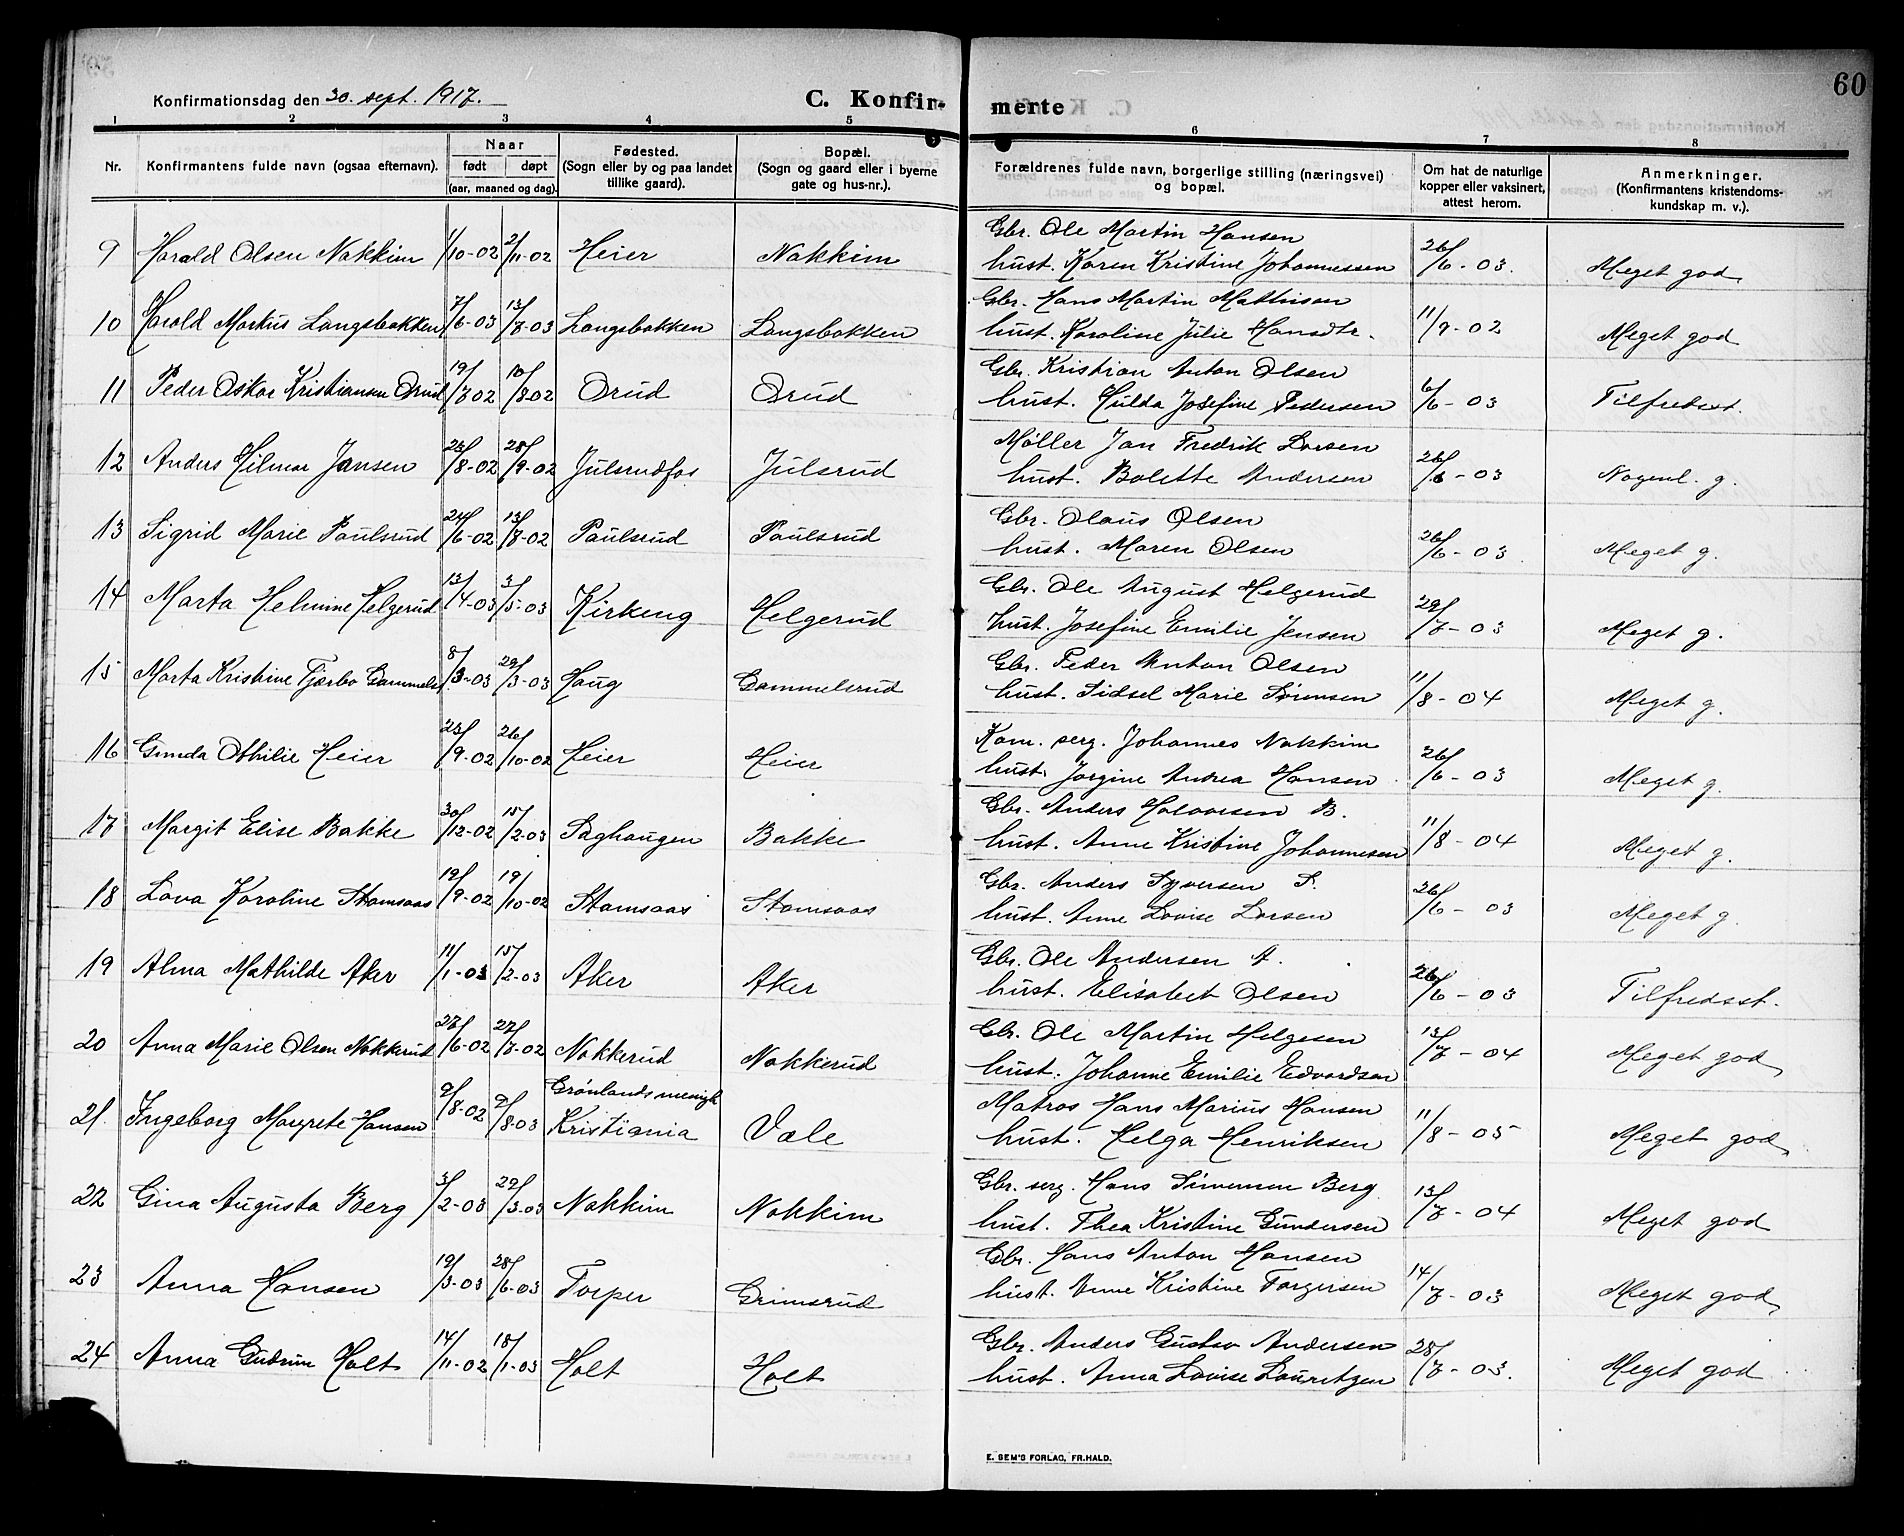 60
Konfirmationsdag den 30. sept. 1917.
C. Konfir- merte
1 2 3 4 5 6 7 8
Nr. Konfirmantens fulde navn (ogsaa efternavn). Naar født døpt (aar, maaned og dag). Fødested. (Sogn eller by og paa landet tillike gaard). Bopæl. (Sogn og gaard eller i byerne gate og hus-nr.). Forældrenes fulde navn, borgerlige stilling (næringsvei) og bopæl. Om hat de naturlige kopper eller vaksinert, attest herom. Anmerkninger. (Konfirmantens kristendoms-kundskap m. v.).
9 Harald Olsen Nakkim 1/10-02 2/11-02 Heier Nakkim Gbr. Ole Martin Hansen
hust. Karen Kristine Johannessen 26/6-03. Meget god
10 Harald Markus Langsbakken 7/6-03 13/8-03 Langsbakken Langsbakken Gbr. Hans Martin Mathisen
hust. Karoline Julie Hansdtr. 11/9-02 Meget god
11 Peder Oskar Kristiansen Orud 19/7 02 10/8 02 Orud Orud Gbr. Kristian Anton Olsen
hust. Hulda Josefine Pedersen 6/6-03 Tilfredsst.
12 Anders Hilmar Jansen 23/8-02 28/9-02 Julsrudfos Julsrud Møller Jan Fredrik Larsen
hust. Bolette Andersen 26/6-03 Nogenl. g.
13 Sigrid Marie Paulsrud 24/6-02 13/8-02 Paulsrud Paulsrud Gbr. Olaus Olsen
hust. Maren Olsen 26/6-03 Meget g.
14 Marta Helmine Helgerud 13/4-03 3/5-03 Kirkeng Helgerud Gbr. Ole August Helgerud
hust. Josefine Emilie Jensen 29/7-03 Meget g.
15 Marta Kristine Tjærbo Gammels 8/3-03 29/3-03 Haug Gammelsrud Gbr. Peder Anton Olsen
hust. Sidsel Marie Sørensen 11/8-04 Meget g.
16 Gunda Othilie Heier 23/9-02 26/10-02 Heier Heier Kom. serg. Johannes Nakkim
hust. Jørgine Andrea Hansen 26/6-03 Meget g.
17 Margit Elise Bakke 30/12-02 15/2-03 Saghaugen Bakke Gbr. Anders Halvorsen B.
hust. Anne Kristine Johannesen 11/8-04 Meget g.
18 Lava Karoline Stamsaas 12/9-02 19/10-02 Stamsaas Stamsaas Gbr. Anders Syversen S.
hust. Anne Lovise Larsen 26/6-03 Meget g.
19 Alma Mathilde Aker 11/1-03 15/2-03 Aker Aker Gbr. Ole Andersen A.
hust. Elisabet Olsen 26/6-03 Tilfredsst.
20 Anna Marie Olsen Nakkerud 27/6-02 27/7-02 Nakkerud Nakkerud Gbr. Ole Martin Helgesen
hust. Johanne Emilie Edvardsen 13/7-04 Meget god
21. Ingeborg Margrete Hansen 9/8-02 9/8-03 Grønlands menigh Kristiania Vale Matros Hans Marius Hansen
hust. Helga Henriksen 11/8-05 Meget god
22 Gina Augusta Berg 3/2-03 29/3-03 Nakkim Nakkim Gbr. serg. Hans Simensen Berg
hust. Thea Kristine Gundersen 13/7-04 Meget god
23 Anna Hansen 19/3-03 28/6-03 Torper Grimsrud Gbr. Hans Anton Hansen
hust. Anne Kristine Torgersen 14/7-03 Meget god
24 Anna Gudrun Holt 14/11-02 18/1-03 Holt Holt Gbr. Anders Gustav Andersen
hust. Anna Lovise Lauretzen 28/7-03. Meget god
E. SEM'S FORLAG, FR.HALD.